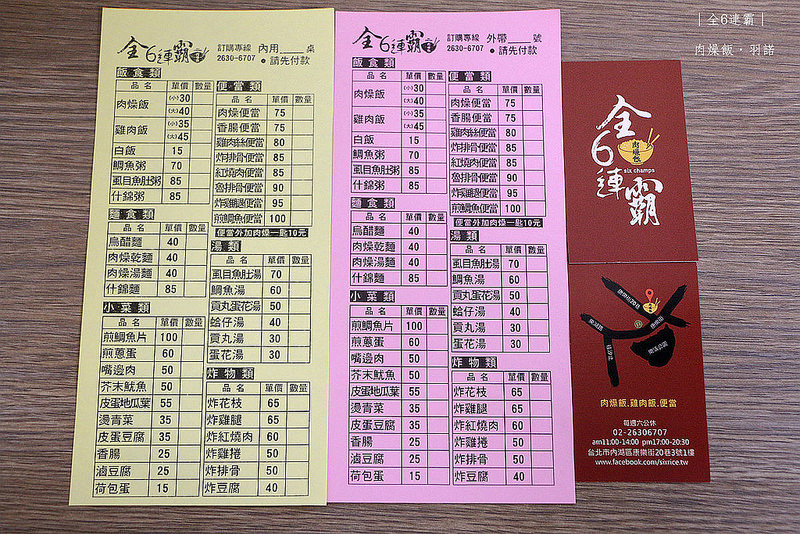 |全6連霸|
肉燥飯・羽諾
全6連霸 訂購專線 2630-6707 內用____桌 ●請先付款
飯食類
品名 單價 數量
肉燥飯 (小)30
(大)40
雞肉飯 (小)35
(大)45
白飯 15
鯛魚粥 70
虱目魚肚粥 85
什錦粥 85
麵食類
品名 單價 數量
烏醋麵 40
肉燥乾麵 40
肉燥湯麵 40
什錦麵 85
小菜類
品名 單價 數量
煎鯛魚片 100
煎蔥蛋 60
嘴邊肉 50
芥末魷魚 50
皮蛋地瓜葉 55
燙青菜 35
皮蛋豆腐 35
香腸 25
滷豆腐 25
荷包蛋 15
便當類
品名 單價 數量
肉燥便當 75
香腸便當 75
雞肉絲便當 80
炸排骨便當 85
紅燒肉便當 85
魯排骨便當 90
炸雞腿便當 95
煎鯛魚便當 100
便當外加肉燥一匙10元
湯類
品名 單價 數量
虱目魚肚湯 70
鯛魚湯 60
貢丸蛋花湯 50
蛤仔湯 40
貢丸湯 30
蛋花湯 30
炸物類
品名 單價 數量
炸花枝 65
炸雞腿 65
炸紅燒肉 60
炸雞捲 50
炸排骨 50
炸豆腐 40
全6連霸 訂購專線 2630-6707 外帶____號 ●請先付款
飯食類
品名 單價 數量
肉燥飯 (小)30
(大)40
雞肉飯 (小)35
(大)45
白飯 15
鯛魚粥 70
虱目魚肚粥 85
什錦粥 85
麵食類
品名 單價 數量
烏醋麵 40
肉燥乾麵 40
肉燥湯麵 40
什錦麵 85
小菜類
品名 單價 數量
煎鯛魚片 100
煎蔥蛋 60
嘴邊肉 50
芥末魷魚 50
皮蛋地瓜葉 55
燙青菜 35
皮蛋豆腐 35
香腸 25
滷豆腐 25
荷包蛋 15
便當類
品名 單價 數量
肉燥便當 75
香腸便當 75
雞肉絲便當 80
炸排骨便當 85
紅燒肉便當 85
魯排骨便當 90
炸雞腿便當 95
煎鯛魚便當 100
便當外加肉燥一匙10元
湯類
品名 單價 數量
虱目魚肚湯 70
鯛魚湯 60
貢丸蛋花湯 50
蛤仔湯 40
貢丸湯 30
蛋花湯 30
炸物類
品名 單價 數量
炸花枝 65
炸雞腿 65
炸紅燒肉 60
炸雞捲 50
炸排骨 50
炸豆腐 40
全6連霸
肉燥飯
six champs
肉燥飯.雞肉飯.便當
每週六公休
02-26306707
am11:00-14:00 pm17:00-20:30
台北市內湖區康樂街20巷3號1樓
www.facebook.com/sixrice.tw